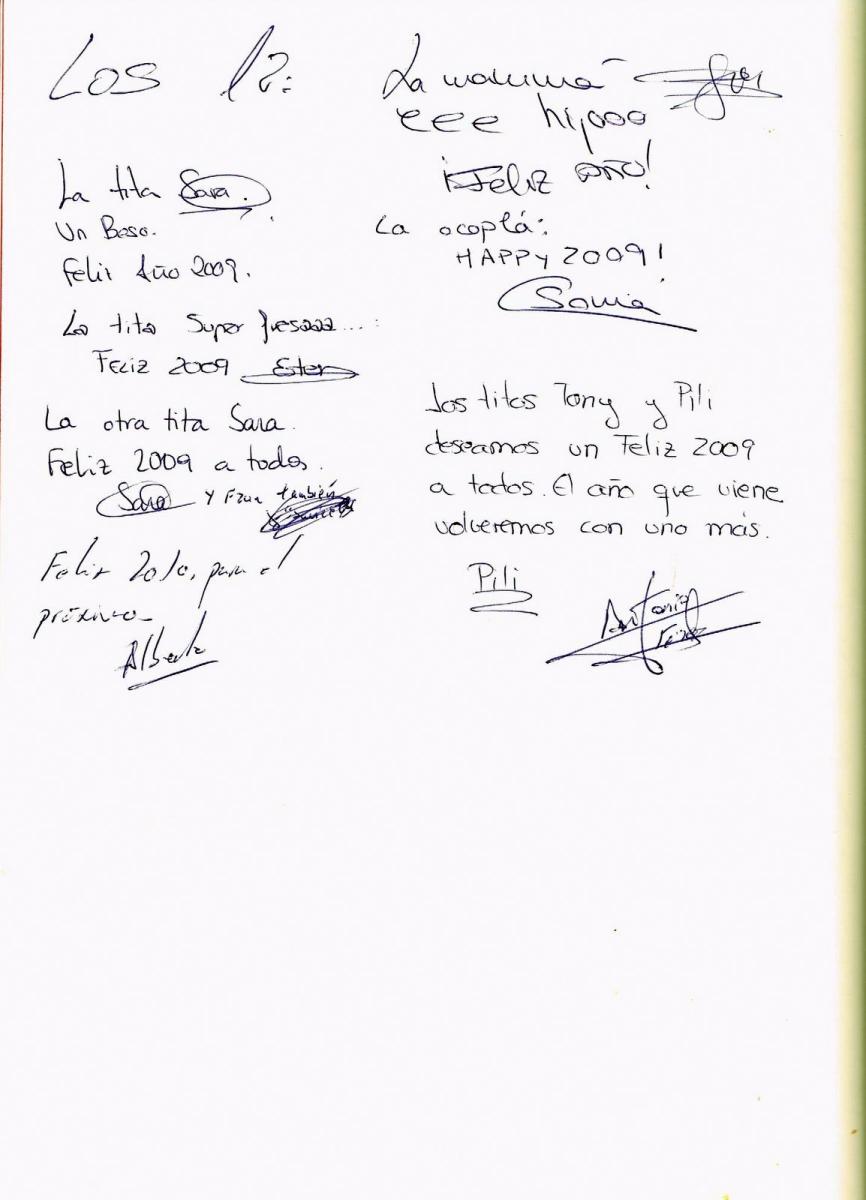 Los 12:
La tita Sara.
Un Beso.
Feliz Año 2009.
La tita Super fresaaa...:
FELIZ 2009 Ester
La otra tita Sara.
Feliz 2009 a todos.
Sara Y Fran también
Feliz 2010, para el
próximo_
Alberto
La mamma
eee hijooo
¡FELIZ AÑO!
La ocoplá:
HAPPY 2009!
Sonia
Los titos Tony y Pili
deseamos un Feliz 2009
a todos. El año que viene
volveremos con uno más.
Pili
Antonio